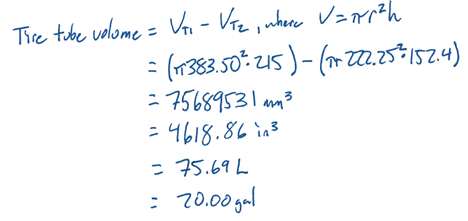 Tire tube volume = V_T1 - V_T2, where V = πr²h
= (π383.50²·215) - (π222.25²·152.4)
= 75689531 mm³
= 4618.86 in³
= 75.69 L
= 20.00 gal